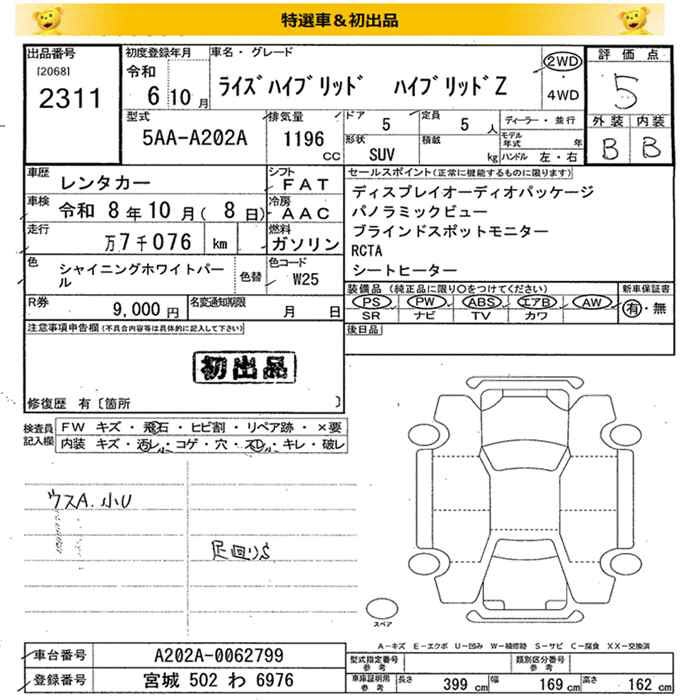 特選車&初出品
出品番号
[2068]
2311
初度登録年月
令和
6 10 月
車名・グレード
ライズハイブリッド ハイブリッドZ
2WD
・
4WD
評価点
5
外装 内装
B B
型式
5AA-A202A
排気量
1196
CC
ドア
5
定員
5 人
形状
SUV
積載
kg
ディーラー・並行
モデル年式 年
ハンドル 左・右
車歴
レンタカー
シフト
F A T
車検 令和 8年 10月( 8日)
冷房
A A C
走行
万 7千076 km
燃料
ガソリン
色
シャイニングホワイトパール
色替
色コード
W25
R券
9,000 円
名変通知期限
月 日
セールスポイント(正常に機能するものに限ります)
ディスプレイオーディオパッケージ
パノラミックビュー
ブラインドスポットモニター
RCTA
シートヒーター
装備品 (純正品に限り○をつけてください)
PS PW ABS エアB AW
SR ナビ TV カワ
新車保証書
有・無
後日品
注意事項申告欄(不具合内容等は具体的に記入して下さい)
初出品
修復歴 有〔箇所 〕
検査員記入欄
FW キズ・飛石・ヒビ割・リペア跡・×要
内装 キズ・汚レ・コゲ・穴・スレ・キレ・破レ
ウスA.小U
足回りS
スペア
A-キズ E-エクボ U-凹み W-補修跡 S-サビ C-腐食 XX-交換済
車台番号
A202A-0062799
登録番号
宮城 502 わ 6976
型式指定番号
参考
類別区分番号
参考
車庫証明用
参考
長さ 399 cm
幅 169 cm
高さ 162 cm